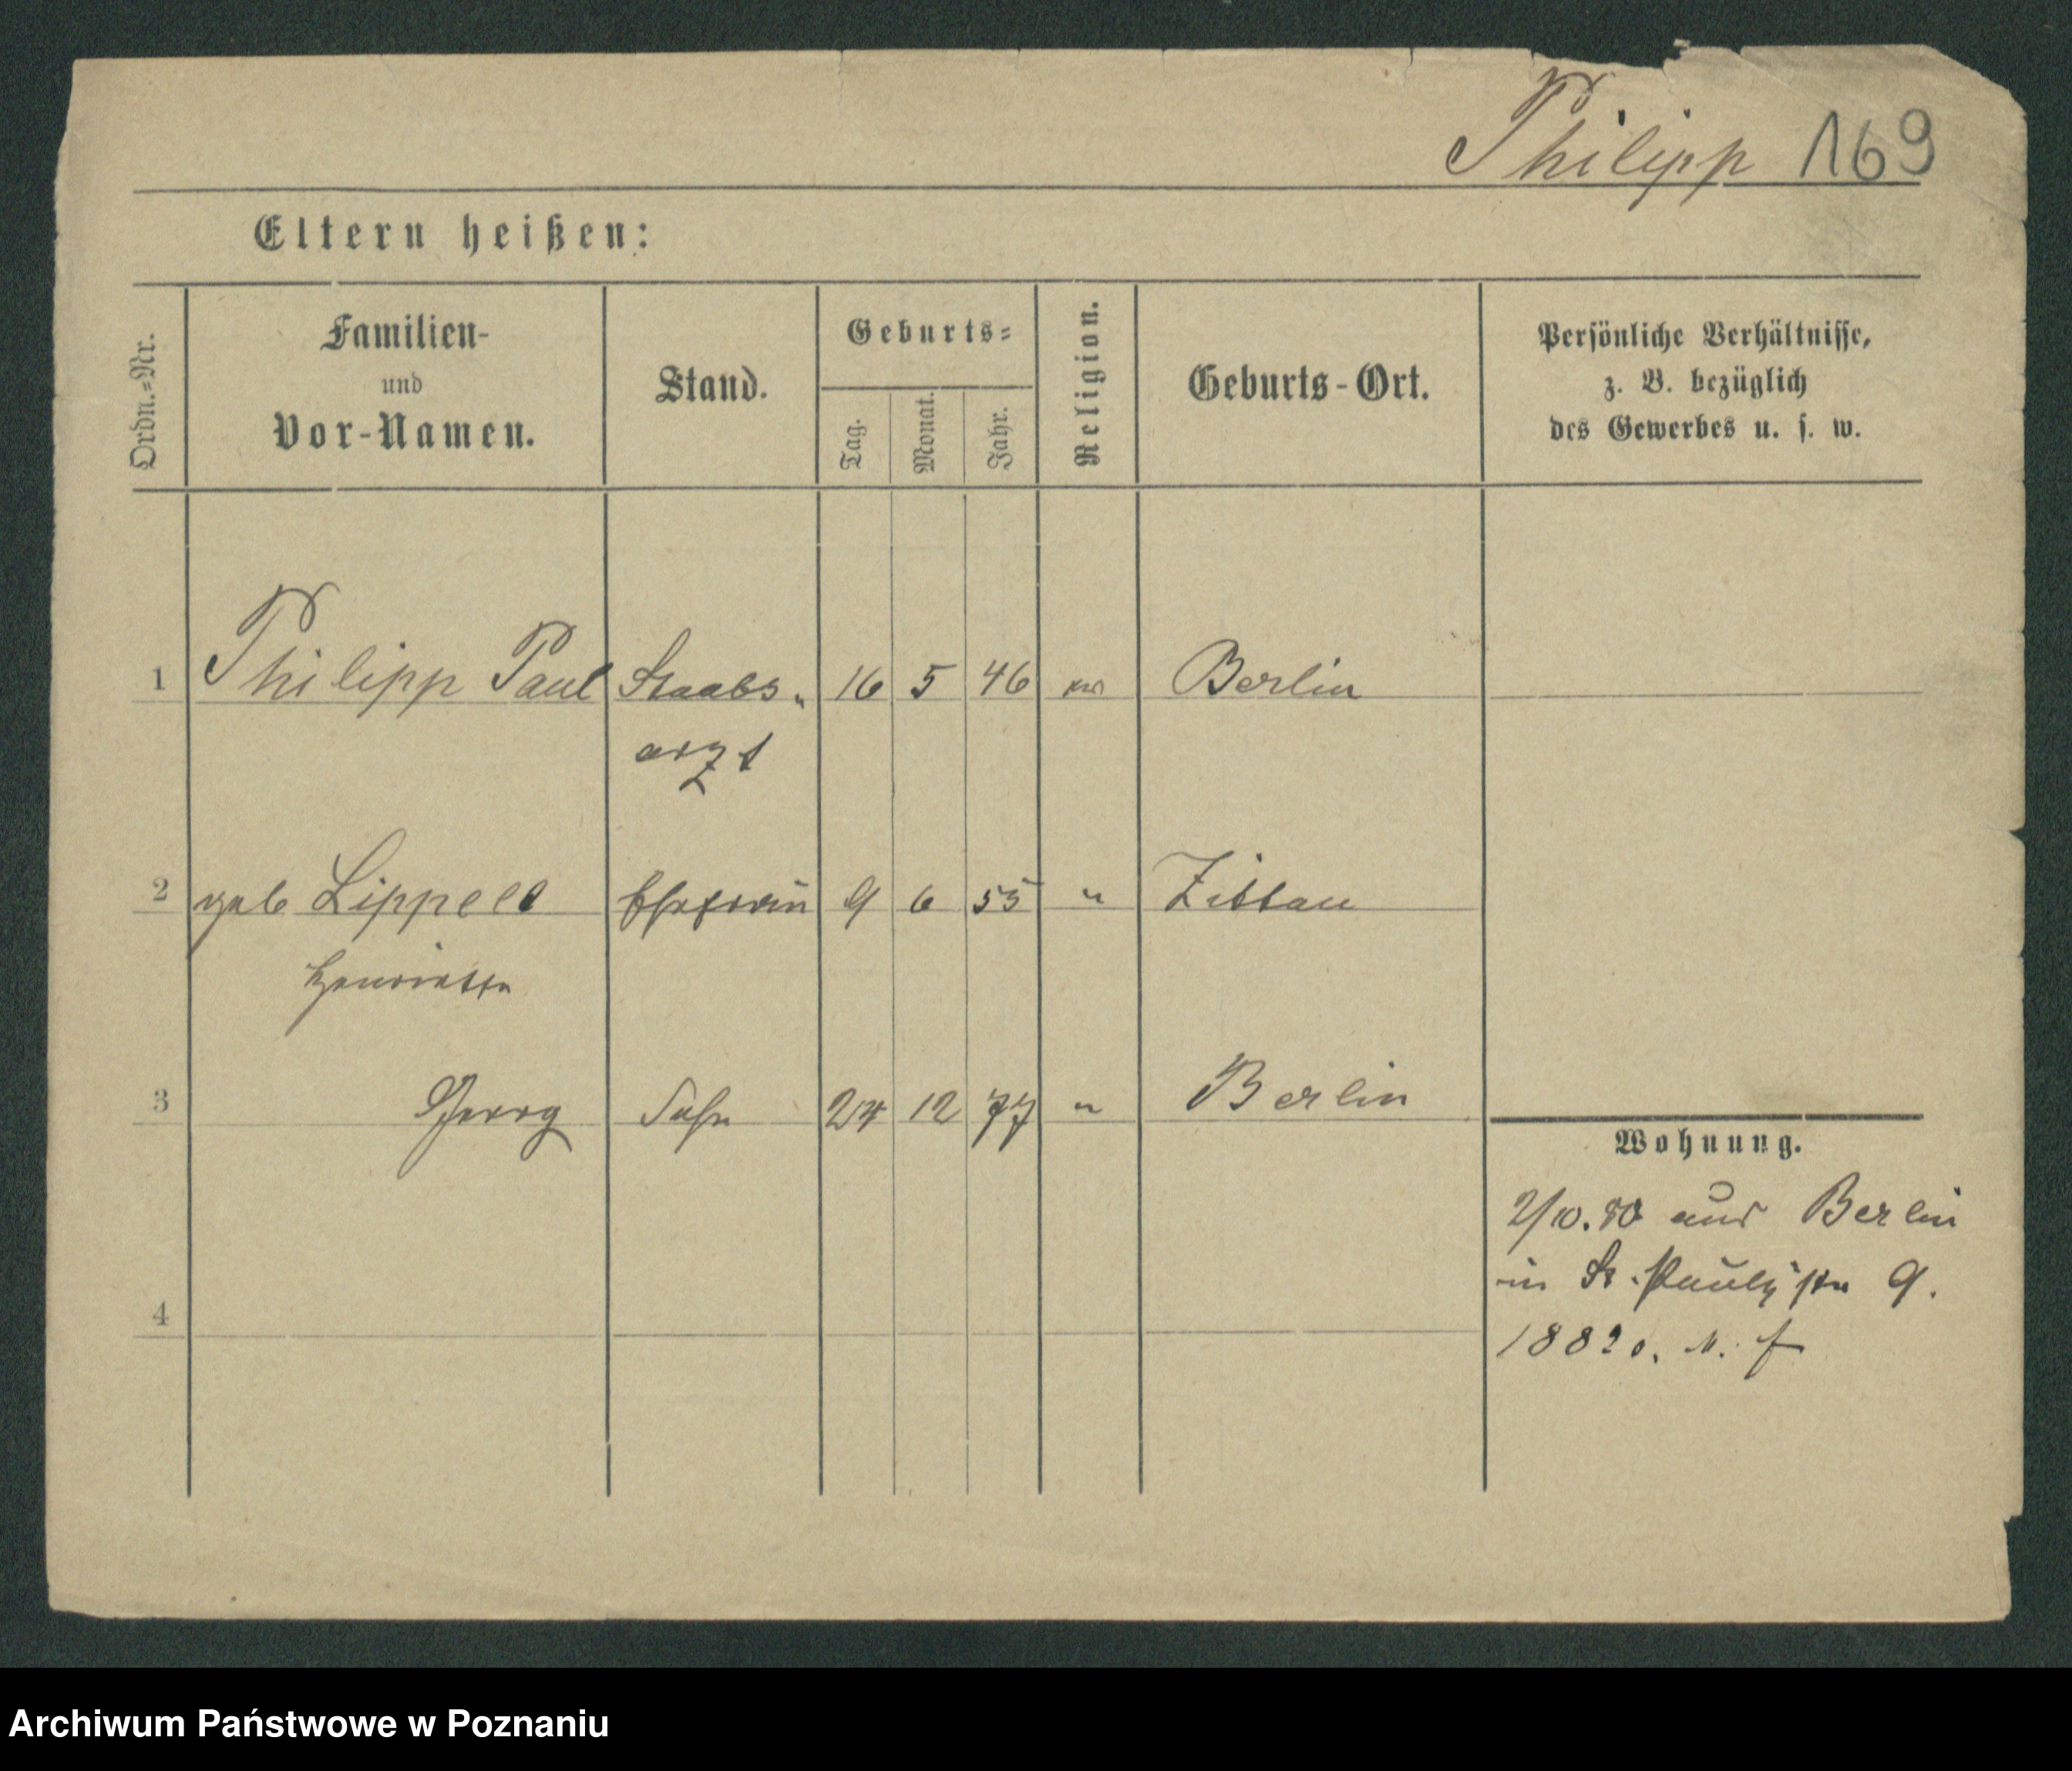 Philipp 169
Eltern heißen:
Ordn.=Nr.
Familien-
und
Vor-Namen.
Stand.
Geburts=
Tag.
Monat.
Jahr.
Religion.
Geburts-Ort.
Persönliche Verhältnisse,
z. B. bezüglich
des Gewerbes u. s. w.
1 Philipp Paul Staabs- 16 5 46 Berlin
arzt
2 geb Lippelt Ehefrau 9 6 55 " Zittau
Henriette
3 Georg Sohn 24 12 77 " Berlin
Wohnung.
2/10.80 aus Berlin
in St. Paulistr 9.
4
188
Archiwum Państwowe w Poznaniu